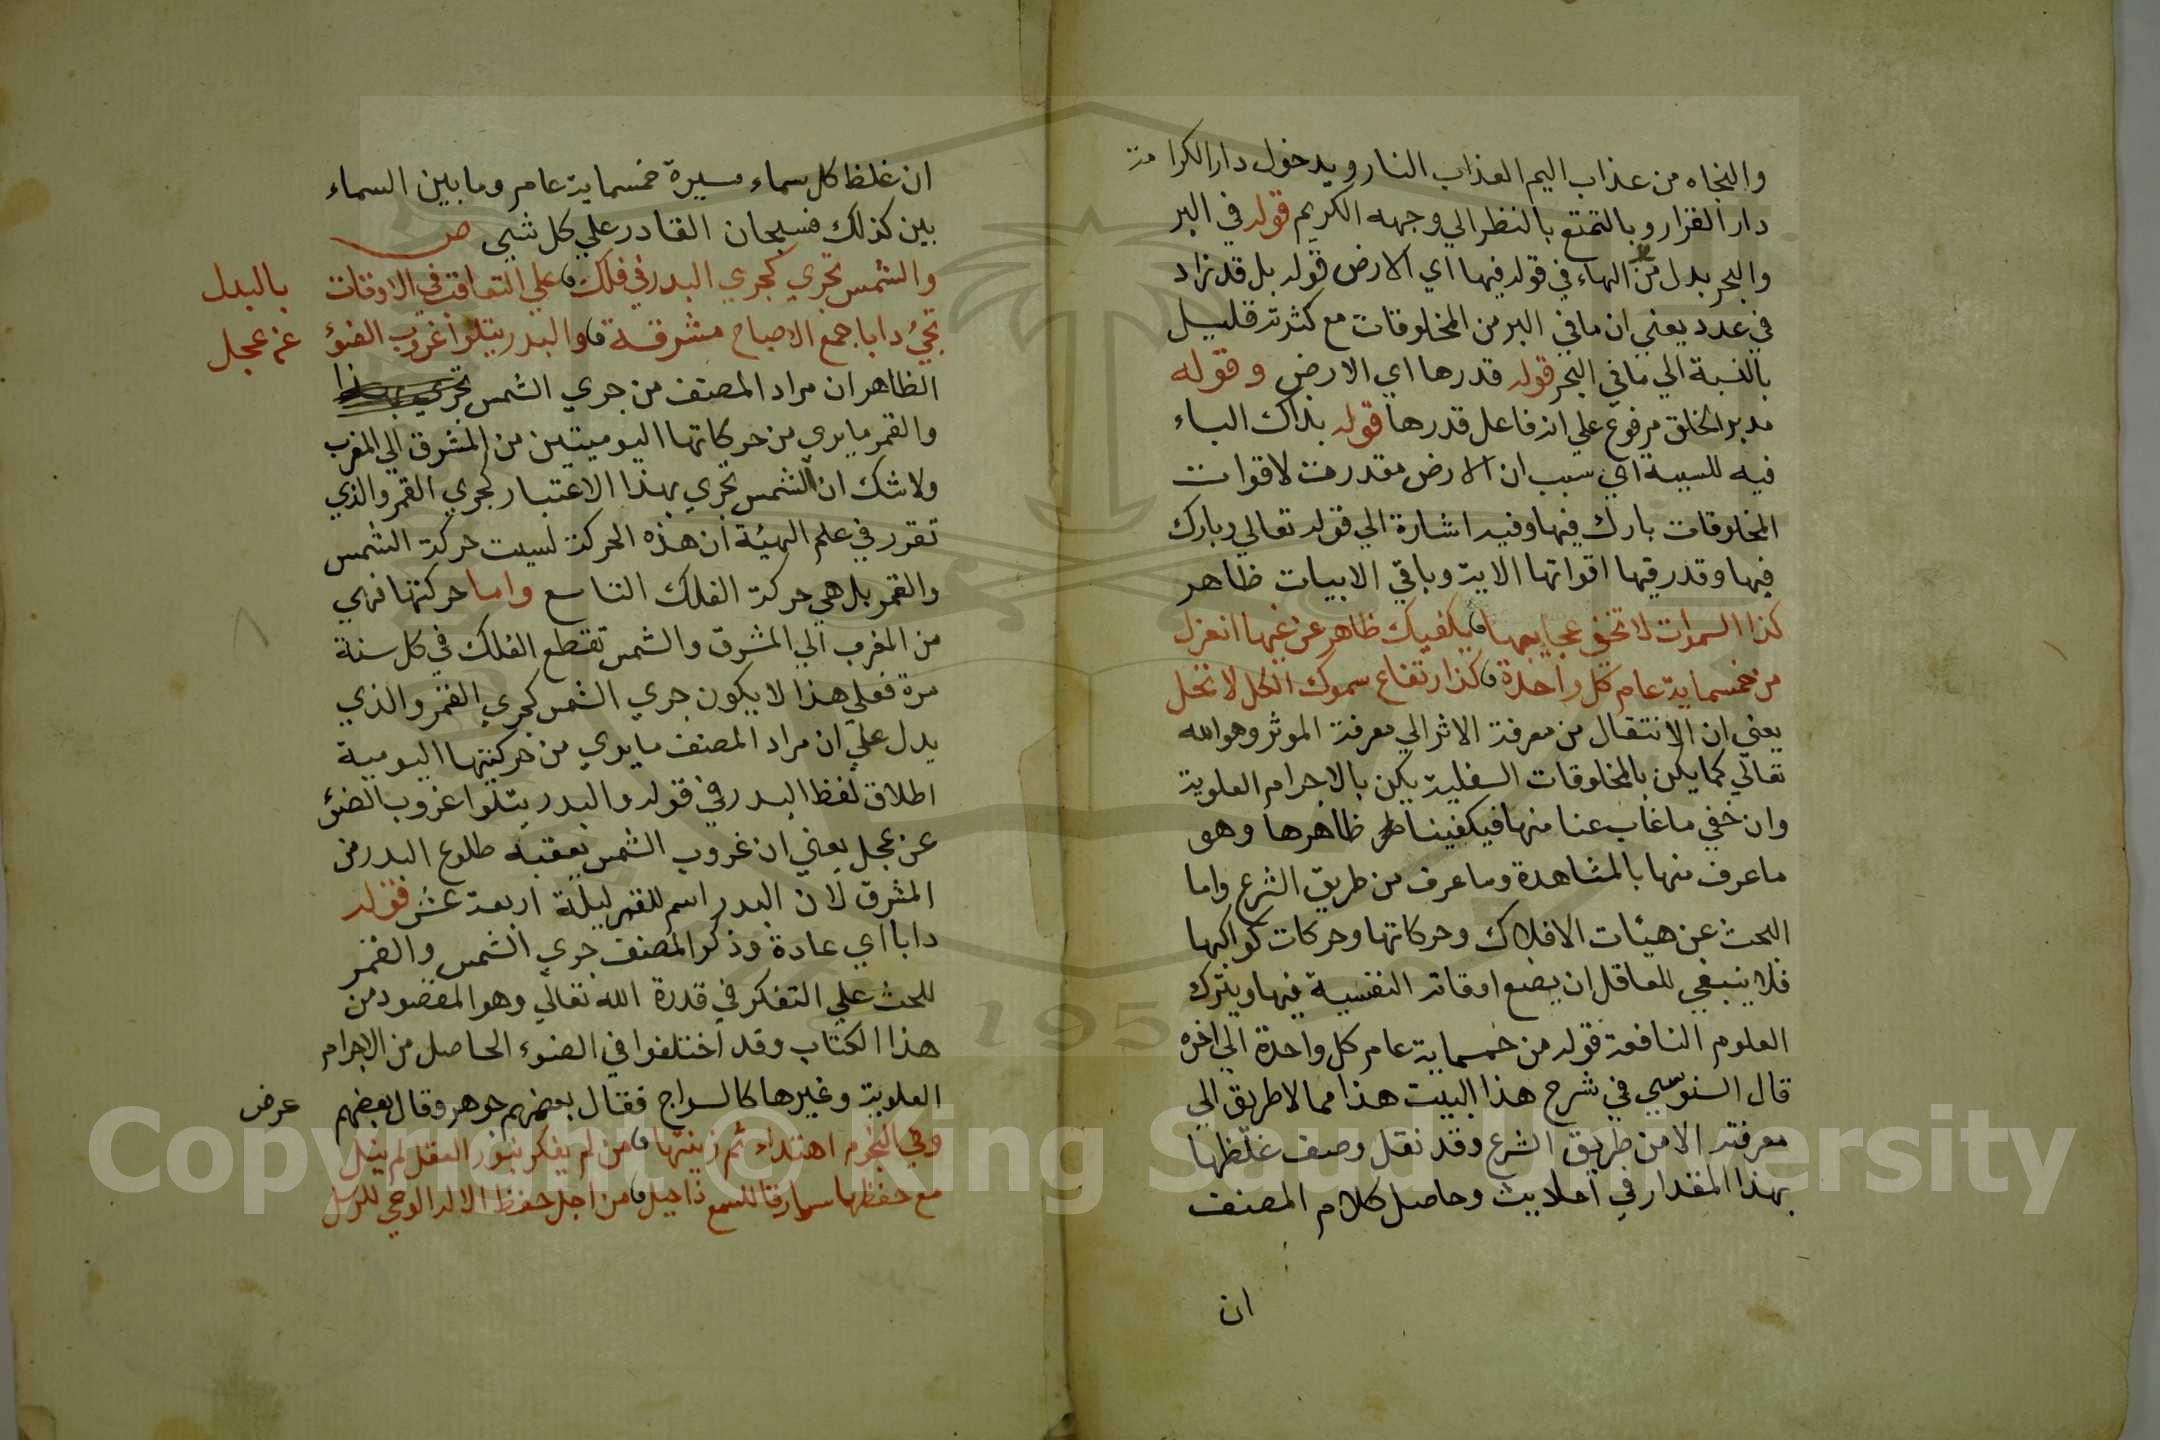 والنجاه من عذاب اليم العذاب النار وبدخول دار الكرامة
دار القرار وبالتمتع بالنظر الي وجهه الكريم قوله في البر
والبحر بدل من الهاء في قوله فيها اي الارض قوله بل قد زاد
في عدد يعني ان ما في البر من المخلوقات مع كثرته قليل
بالنسبة الي ما في البحر قوله قدرها اي الارض وقوله
مدبر الخلق مرفوع علي انه فاعل قدرها قوله بذاك الباء
فيه للسببية اي سبب ان الارض مقدرة لاقوات
المخلوقات بارك فيها وفيه اشارة الي قوله تعالي وبارك
فيها وقدر فيها اقواتها الاية وباقي الابيات ظاهر
كذا السموات لا تخفي عجايبها يكفيك ظاهر عن غيها انعزل
من خمسماية عام كل واحدة كذا ارتفاع سموك الكل لا تخل
يعني ان الانتقال من معرفة الاثر الي معرفة الموثر وهو الله
تعالي كما يكن بالمخلوقات السفلية يكن بالاجرام العلوية
وان خفي ما غاب عنا منها فيكفينا ظاهرها وهو
ما عرف منها بالمشاهدة وما عرف من طريق الشرع واما
البحث عن هيئات الافلاك وحركاتها وحركات كواكبها
فلا ينبغي للعاقل ان يضع اوقاته النفسية فيها ويترك
العلوم النافعة قوله من خمسماية عام كل واحدة الي اخره
قال السنوسي في شرح هذا البيت هذا مما لا طريق الي
معرفته الا من طريق الشرع وقد نقل وصف غلظها
بهذا المقدار في احاديث وحاصل كلام المصنف
ان
ان غلظ كل سماء مسيرة خمسماية عام وما بين السماء
بين كذلك فسبحان القادر علي كل شيي ص
والشمس تجري كجري البدر في فلك علي التعاقب في الاوقات
بالبدل
تجيء دابا جمع الاصباح مشرقة والبدر يتلوا غروب الضؤ
عن عجل
الظاهر ان مراد المصنف من جري الشمس تجري
والقمر ما يري من حركاتها اليوميتين من المشرق الي المغرب
ولا شك ان الشمس تجري بهذا الاعتبار كجري القمر والذي
تقرر في علم الهيئة ان هذه الحركة ليست حركة الشمس
والقمر بل هي حركة الفلك التاسع واما حركتها فهي
من المغرب الي المشرق والشمس تقطع الفلك في كل سنة
مرة فعلي هذا لا يكون جري الشمس كجري القمر والذي
يدل علي ان مراد المصنف ما يري من حركتها اليومية
اطلاق لفظ البدر في قوله والبدر يتلوا غروب الضؤ
عن عجل يعني ان غروب الشمس يعقبه طلوع البدر من
المشرق لان البدر اسم للقمر ليلة اربعة عشر قوله
دابا اي عادة وذكر المصنف جري الشمس والقمر
للحث علي التفكر في قدرة الله تعالي وهو المقصود من
هذا الكتاب وقد اختلفوا في الضوء الحاصل من الاجرام
العلوية وغيرها كالسراج فقال بعضهم جوهر وقال بعضهم
عرض
وفي النجوم اهتداء ثم زينتها من لم يفكر بنور العقل لم ينل
مع حفظها سارقا للسمع ذا حيل من اجل حفظ الاله الوحي للرسل
Copyright © King Saud University
195